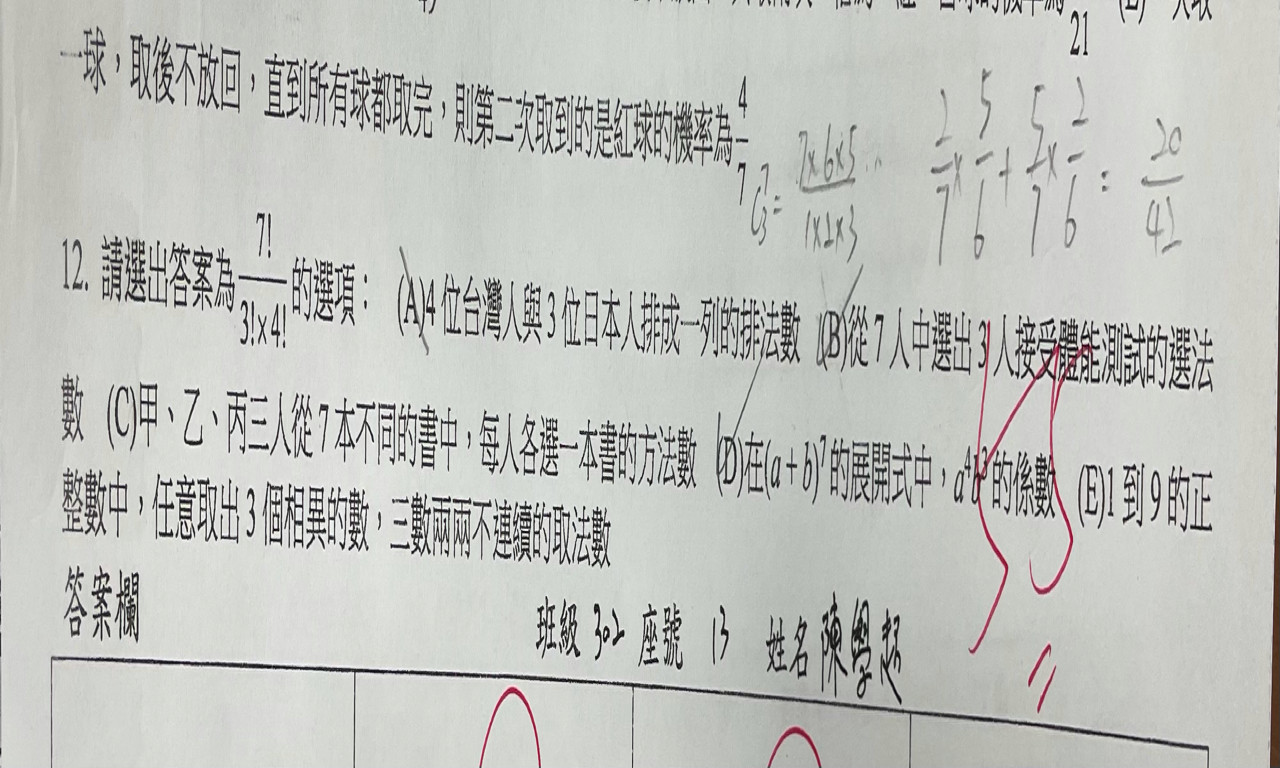 21
一球，取後不放回，直到所有球都取完，則第二次取到的是紅球的機率為 4/7
C⁷₃ = 7×6×5 / 1×2×3 2/7 × 5/6 + 5/7 × 2/6 = 20/42
12. 請選出答案為 7!/3!×4! 的選項： (A)4 位台灣人與 3 位日本人排成一列的排法數 (B)從 7 人中選出 3 人接受體能測試的選法
數 (C)甲、乙、丙三人從 7 本不同的書中，每人各選一本書的方法數 (D)在(a + b)⁷ 的展開式中，a⁴b³ 的係數 (E)1 到 9 的正
整數中，任意取出 3 個相異的數，三數兩兩不連續的取法數
答案欄 班級 302 座號 13 姓名 陳學超